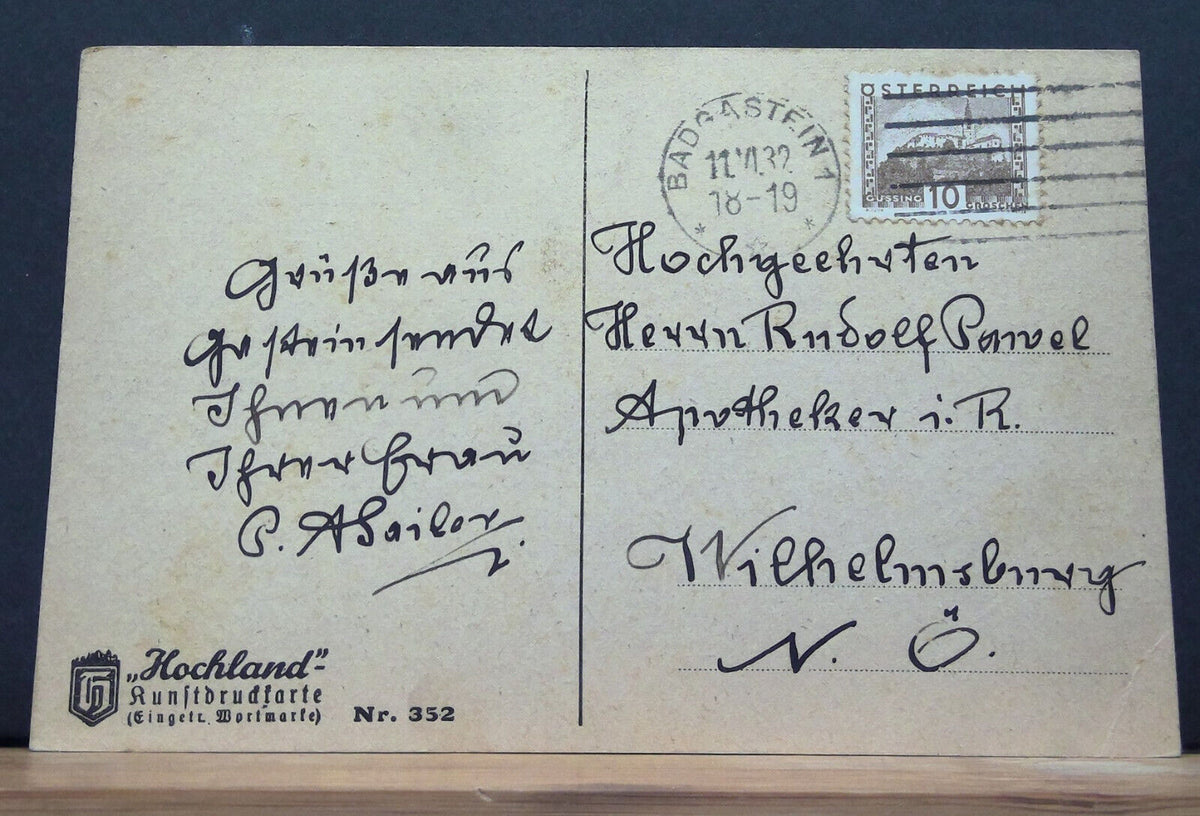 Grüße aus
Gastein sendet
Ihnen und
Ihrer Frau
P.
„Hochland"
Kunstdruckkarte
(Eingetr. Wortmarke) Nr. 352
BADGASTEIN 1
11.VI.32
18-19
ÖSTERREICH
GÜSSING 10 GROSCHEN
Hochgeehrten
Herrn Rudolf Pawel
Apotheker i. R.
Wilhelmsburg
N. Ö.